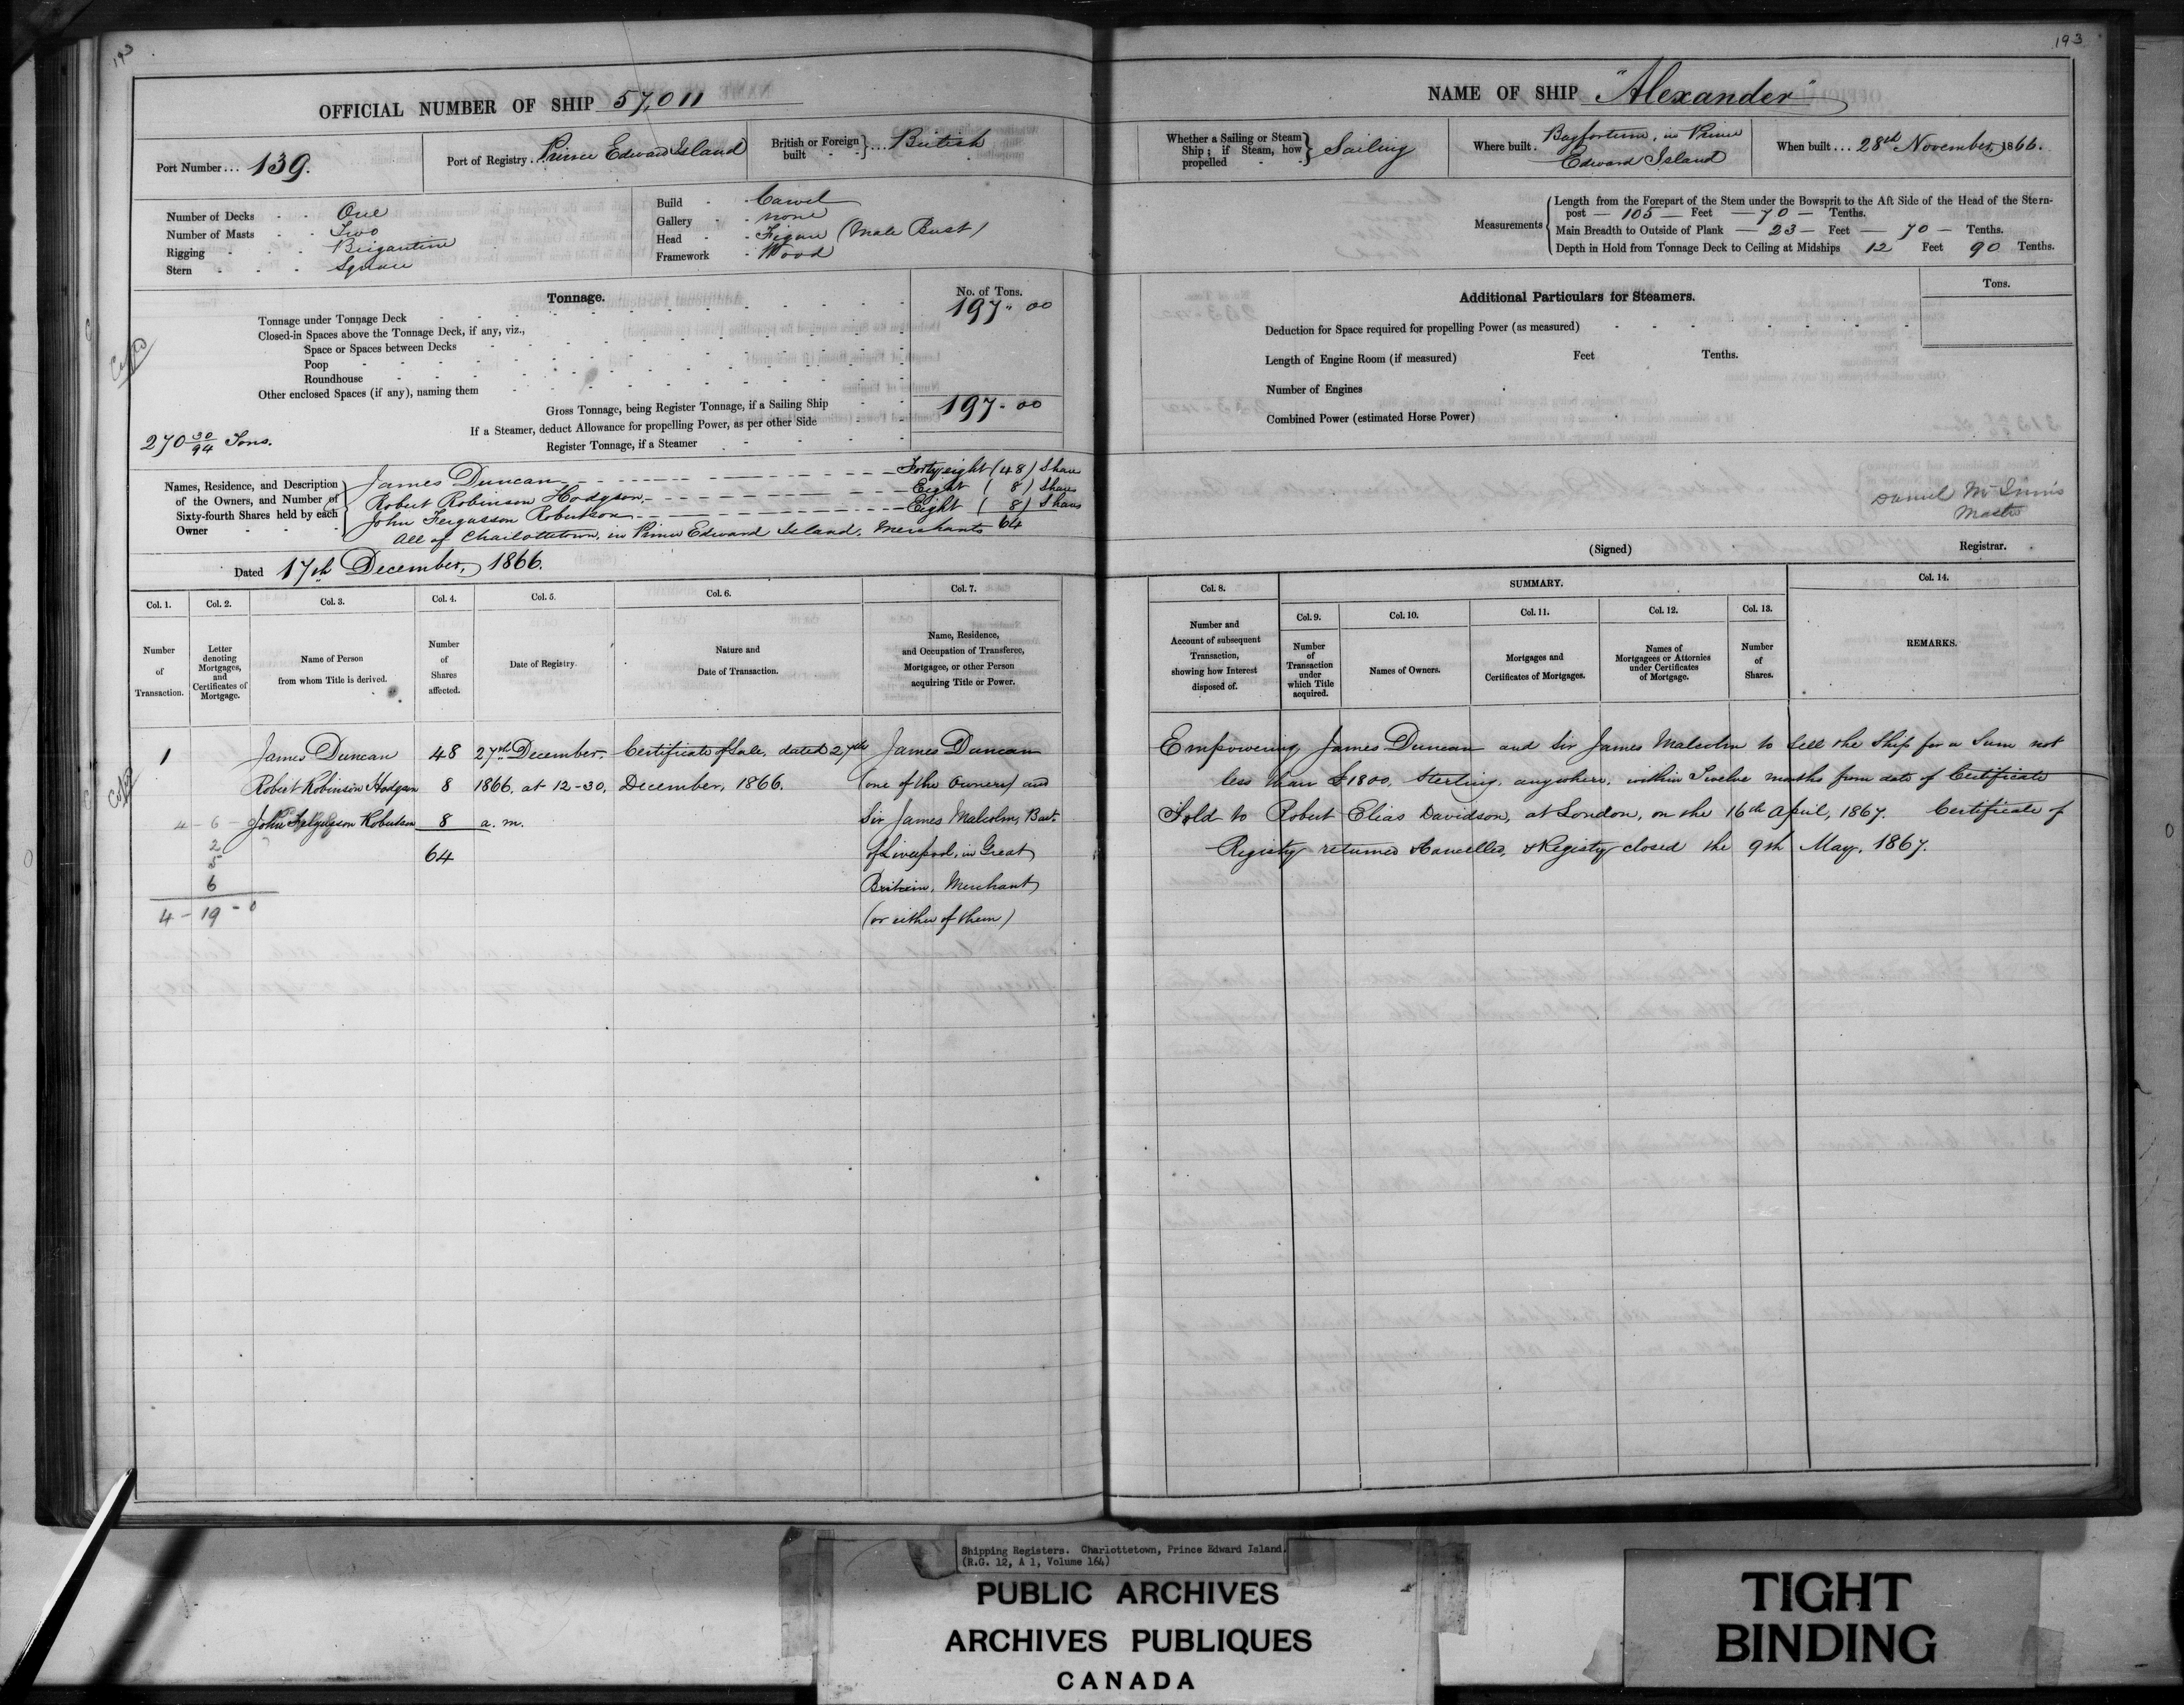 193
193
OFFICIAL NUMBER OF SHIP 57,011
Port Number... 139.
Port of Registry. Prince Edward Island
British or Foreign built } ... British
Number of Decks - - One
Number of Masts - - Two
Rigging - - - Brigantine
Stern - - - Square
Build - - Carvel
Gallery - - none
Head - - Figure (Male Bust)
Framework - Wood
Tonnage.
No. of Tons.
Tonnage under Tonnage Deck 197 " 00
Closed-in Spaces above the Tonnage Deck, if any, viz.,
Space or Spaces between Decks
Poop
Roundhouse
Other enclosed Spaces (if any), naming them
Gross Tonnage, being Register Tonnage, if a Sailing Ship 197 - 00
If a Steamer, deduct Allowance for propelling Power, as per other Side
Register Tonnage, if a Steamer
270 30/94 Tons.
Names, Residence, and Description of the Owners, and Number of Sixty-fourth Shares held by each Owner
James Duncan Forty eight (48) Shares
Robert Robinson Hodgson Eight (8) Shares
John Fergusson Robertson Eight (8) Shares
All of Charlottetown, in Prince Edward Island, Merchants 64
Dated 17th December, 1866.
Col. 1. Col. 2. Col. 3. Col. 4. Col. 5. Col. 6. Col. 7.
Number of Transaction.
Letter denoting Mortgages, and Certificates of Mortgage.
Name of Person from whom Title is derived.
Number of Shares affected.
Date of Registry.
Nature and Date of Transaction.
Name, Residence, and Occupation of Transferee, Mortgagee, or other Person acquiring Title or Power.
1 James Duncan 48 27th December. Certificate of Sale, dated 27th James Duncan
Robert Robinson Hodgson 8 1866, at 12-30, December, 1866. (one of the Owners) and
4 - 6 - John Fergusson Robertson 8 a.m. Sir James Malcolm, Bart.
2
5 64 of Liverpool, in Great
6 Britain, Merchant
4 - 19 - 0 (or either of them)
NAME OF SHIP "Alexander"
Whether a Sailing or Steam Ship; if Steam, how propelled } Sailing
Where built. Bayfortune, in Prince Edward Island
When built... 28th November, 1866.
Measurements
Length from the Forepart of the Stem under the Bowsprit to the Aft Side of the Head of the Stern-
post — 105 — Feet — 70 — Tenths.
Main Breadth to Outside of Plank — 23 — Feet — 70 — Tenths.
Depth in Hold from Tonnage Deck to Ceiling at Midships 12 Feet 90 Tenths.
Additional Particulars for Steamers.
Tons.
Deduction for Space required for propelling Power (as measured)
Length of Engine Room (if measured) Feet Tenths.
Number of Engines
Combined Power (estimated Horse Power)
Daniel McInnis
Master
(Signed) Registrar.
Col. 8. SUMMARY. Col. 14.
Col. 9. Col. 10. Col. 11. Col. 12. Col. 13.
Number and Account of subsequent Transaction, showing how Interest disposed of.
Number of Transaction under which Title acquired.
Names of Owners.
Mortgages and Certificates of Mortgages.
Names of Mortgagees or Attornies under Certificates of Mortgage.
Number of Shares.
REMARKS.
Empowering James Duncan and Sir James Malcolm to Sell the Ship for a Sum not
less than £1800, Sterling, anywhere, within Twelve months from date of Certificate
Sold to Robert Elias Davidson, at London, on the 16th April, 1867. Certificate of
Registry returned & Cancelled, & Registry closed the 9th May, 1867.
Shipping Registers. Charlottetown, Prince Edward Island.
(R.G. 12, A 1, Volume 164)
PUBLIC ARCHIVES
ARCHIVES PUBLIQUES
CANADA
TIGHT
BINDING